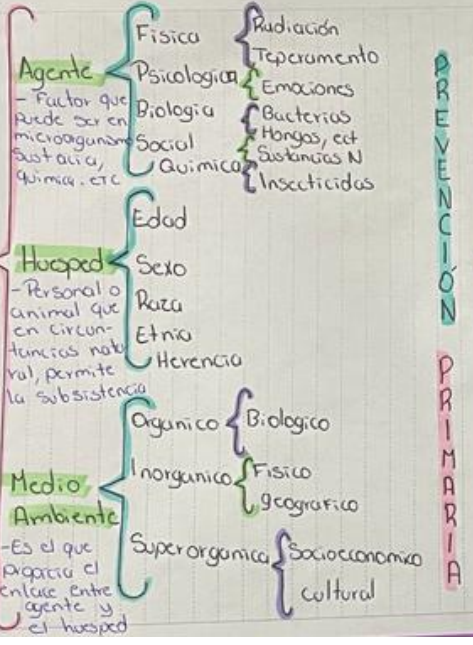 Agente
- Factor que
puede ser en
microorganismo
sustacia,
quimica. etc
Fisica
Psicologica
Biologia
Social
Quimica
Radiación
Teperamento
Emociones
Bacterias
Hongos, ect
Sustancias N
Insecticidas
Huesped
- Personal o
animal que
en circun-
tancias natu
ral, permite
la subsistencia
Edad
Sexo
Raza
Etnia
Herencia
Medio
Ambiente
- Es el que
el
enlace entre
agente y
el huesped
Organico
Biologico
Inorganico
Fisico
geografico
Superorganica
Socioeconomico
cultural
PREVENCIÓN PRIMARIA